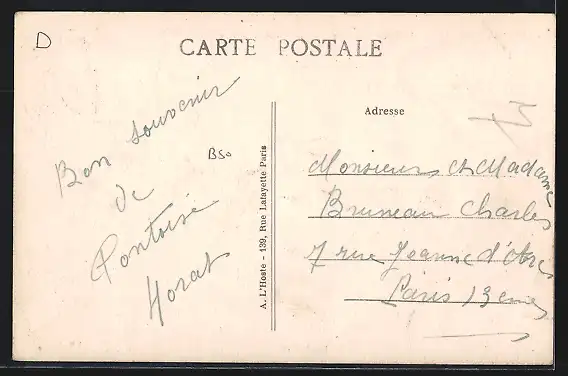 D
CARTE POSTALE
Adresse
Bon souvenir
de
Pontoise
Horat
B50
A. L'Hoste - 139, Rue Lafayette Paris
Monsieur et Madame
Bruneau Charles
7 rue Jeanne d'Arc
Paris 13eme